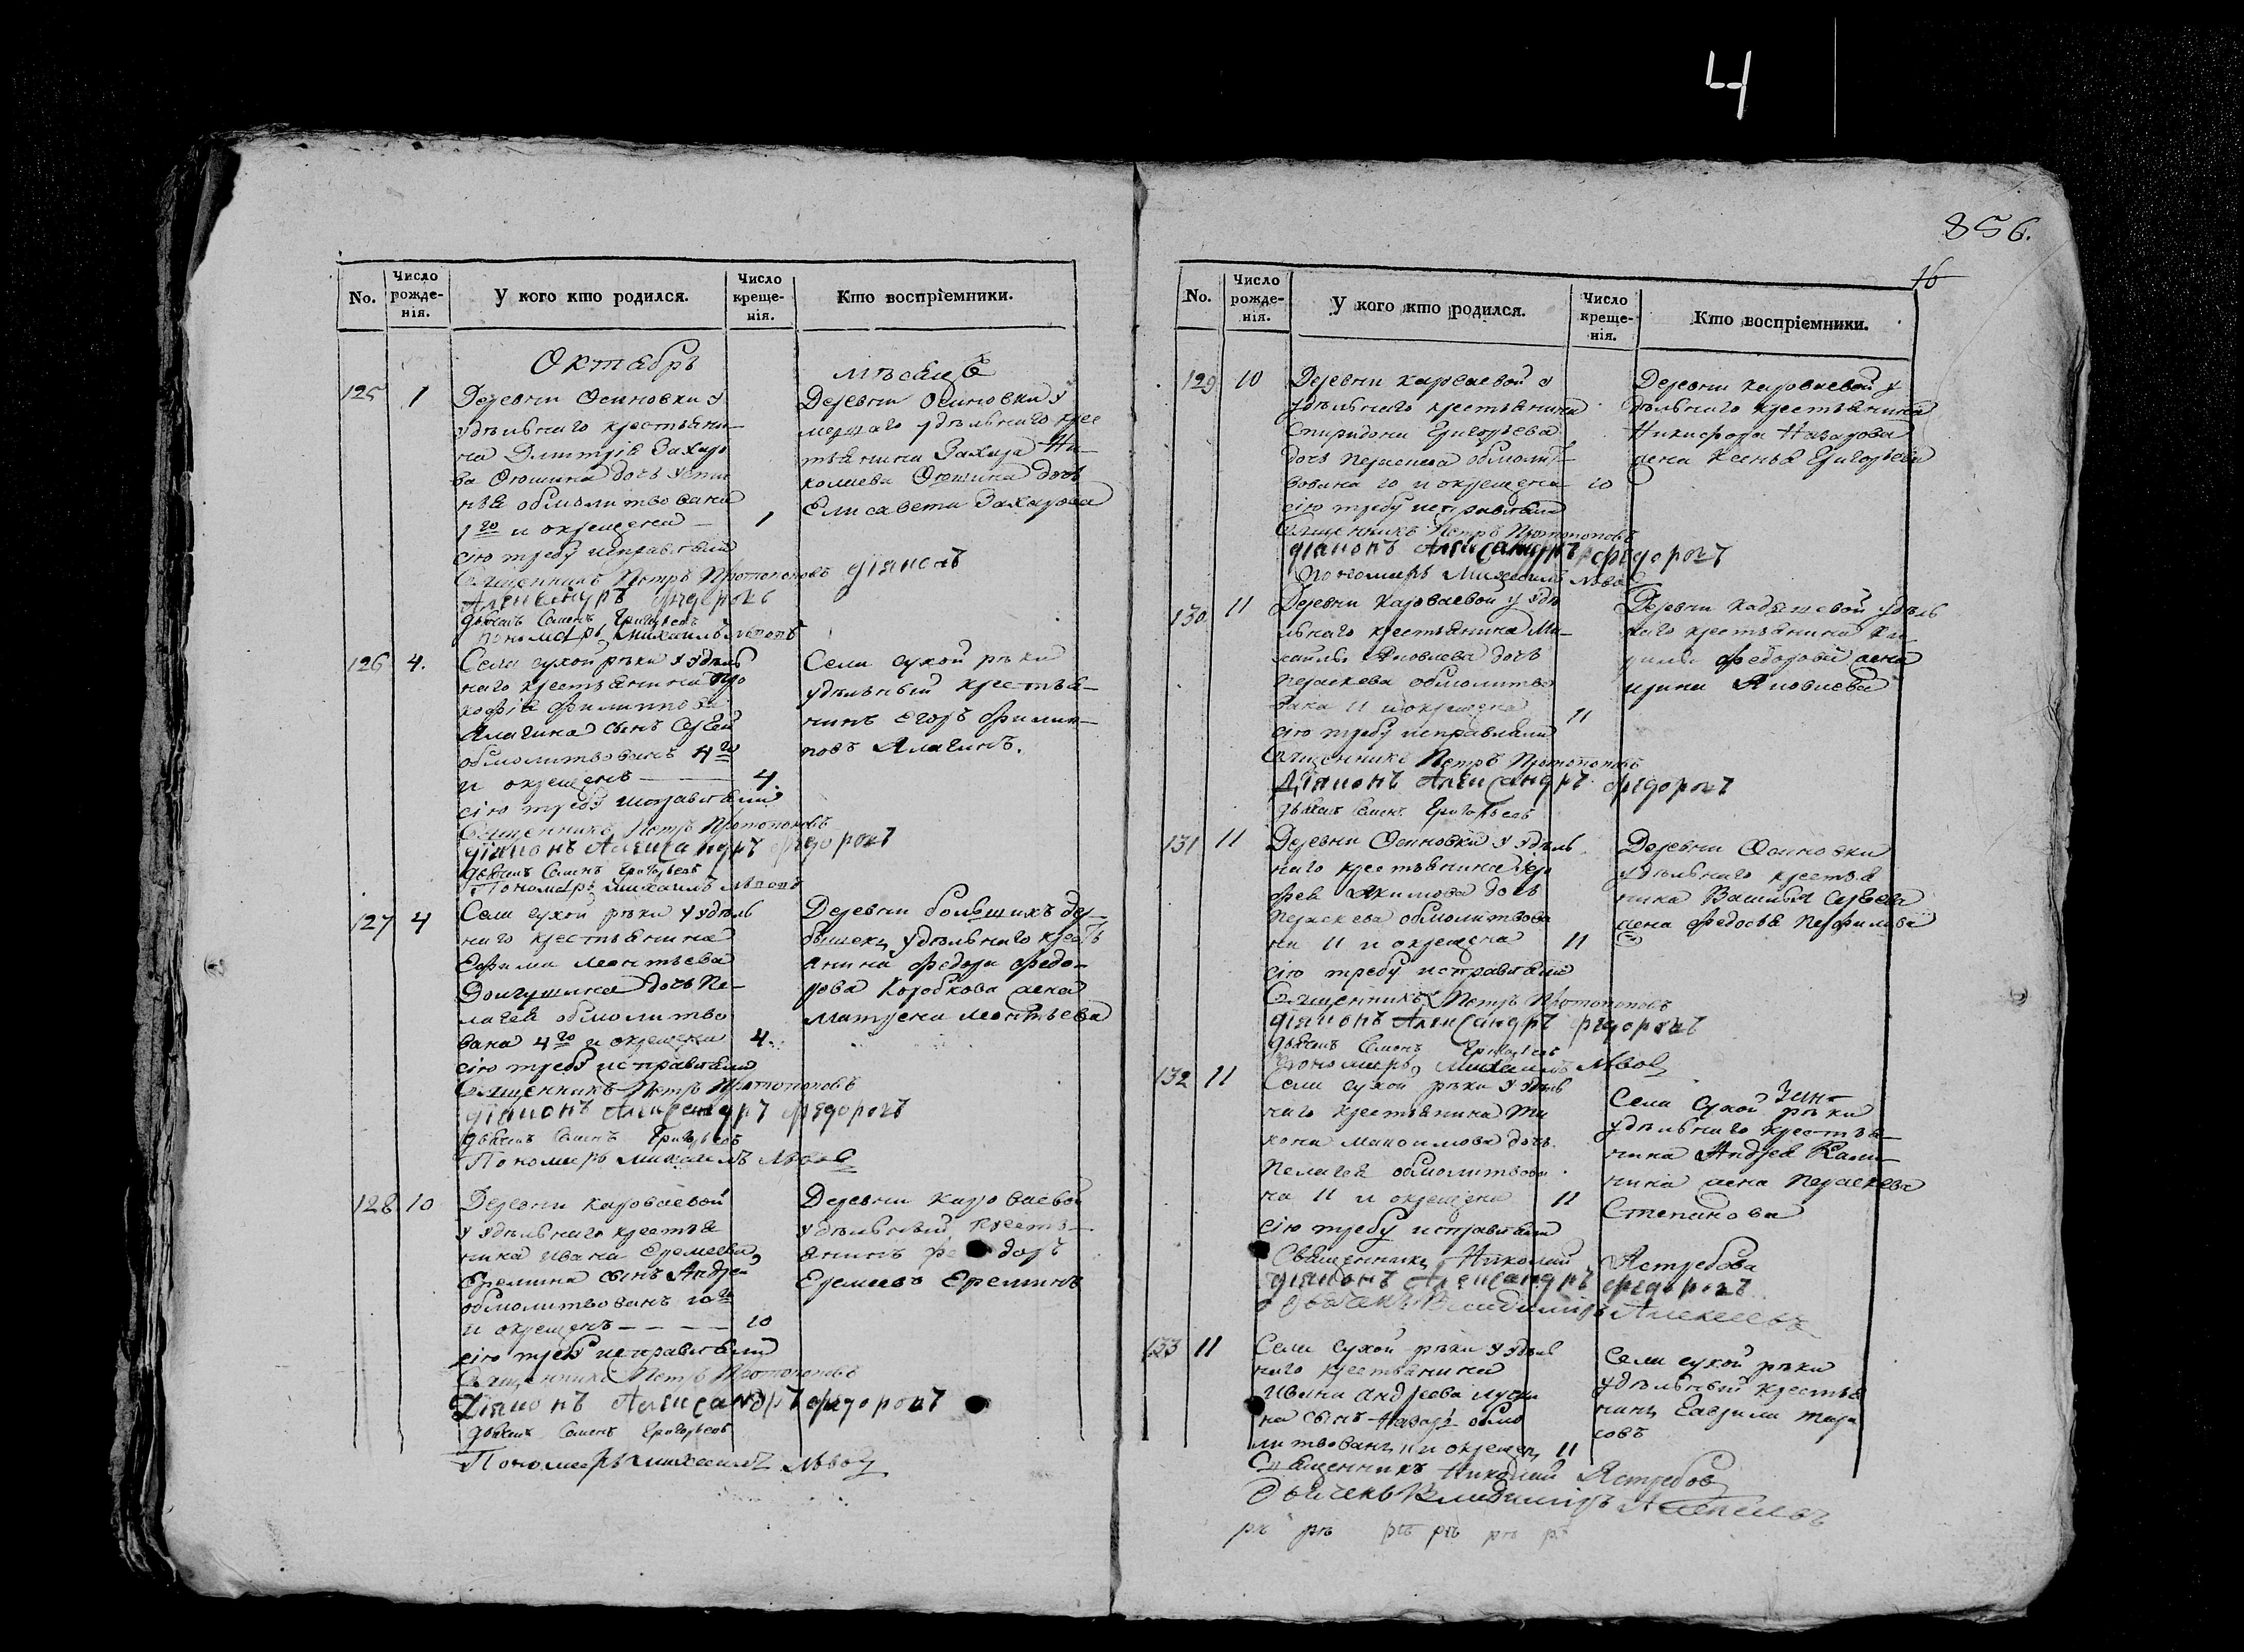 4
856.
16
No.
Число рожденія.
У кого кто родился.
Число крещенія.
Кто воспріемники.
Октябрь мѣсяцъ
125 1
Деревни Осиновки у
удѣльнаго крестьяни-
на Дмитрія Захаро
ва дочь Усти
нья обмолитвована
1го и окрещена — 1
сію требу исправляли
Священникъ Петръ Протопоповъ діяконъ
Александръ Федоровъ
дьячекъ Семенъ Григорьевъ
пономарь Михаилъ Львовъ
Деревни Осиновки у
мершаго удѣльнаго крес
тьянина Захара Ни-
колаева дочь
Елисавета Захарова
126 4.
Села сухой рѣки у удѣль
наго крестьянина Про
кофія Филиппова
Алагина сынъ Сергей
обмолитвованъ 4го
и окрещенъ — 4.
сію требу исправляли
Священникъ Петръ Протопоповъ
діяконъ Александръ Федоровъ
дьячекъ Семенъ Григорьевъ
Пономарь Михаилъ Львовъ
Села сухой рѣки
удѣльный крестья-
нинъ Егоръ Филип-
повъ Алагинъ.
127 4
Села сухой рѣки у удѣль
наго крестьянина
Ефима Леонтьева
Долгушина дочь Пе-
лагея обмолитво
вана 4го и окрещена 4.
сію требу исправляли
Священникъ Петръ Протопоповъ
діяконъ Александръ Федоровъ
дьячекъ Семенъ Григорьевъ
Пономарь Михаилъ Львовъ
Деревни
удѣльнаго крест
янина Федора Федо-
рова Коробкова жена
Матрена Леонтьева
128 10
Деревни Караваевой
у удѣльнаго крестья
нина Ивана Еремеева
Еремина сынъ Андрей
обмолитвованъ 10го
и окрещенъ — — — 10
сію требу исправляли
Священникъ Петръ Протопоповъ
Діяконъ Александръ Федоровъ
дьячекъ Семенъ Григорьевъ
Пономарь Михаилъ Львовъ
Деревни Караваевой
удѣльный кресть-
янинъ Федоръ
Еремеевъ Ереминъ
No.
Число рожденія.
У кого кто родился.
Число крещенія.
Кто воспріемники.
129 10
Деревни Караваевой у
удѣльнаго крестьянина
Спиридона Григорьева
дочь обмолит-
вована 10 и окрещена 10
сію требу исправляли
Священникъ Петръ Протопоповъ
діяконъ Александръ Федоровъ
Пономарь Михаилъ Львовъ
Деревни Караваевой у
дѣльнаго крестьянина
Никифора Назарова
жена Ксенья Григорьева
130 11
Деревни Караваевой у удѣ
льнаго крестьянина Ми-
хайлы Яковлева дочь
Параскева обмолитво
вана 11 и окрещена 11
сію требу исправляли
Священникъ Петръ Протопоповъ
Діяконъ Александръ Федоровъ
дьячекъ Семенъ Григорьевъ
Деревни удѣль
наго крестьянина
Федоровой жена
Ирина Яковлева
131 11
Деревни Осиновки у удѣль
наго крестьянина
Якимова дочь
Параскева обмолитвова
на 11 и окрещена 11
сію требу исправляли
Священникъ Петръ Протопоповъ
діяконъ Александръ Федоровъ
дьячекъ Семенъ Григорьевъ
Пономарь Михаилъ Львовъ
Деревни Осиновки
удѣльнаго крестья
нина Василья Сергеева
жена Федосья
132 11
Села сухой рѣки у удѣль
наго крестьянина Ти
хона Максимова дочь
Пелагея обмолитвова
на 11 и окрещена 11
сію требу исправляли
Священникъ Николай Ястребовъ
діяконъ Александръ Федоровъ
дьячекъ Владиміръ Алексеевъ
Села Сухой рѣки
удѣльнаго крестья-
нина Андрея Кали-
нина жена Параскева
Степанова
133 11
Села Сухой рѣки у удѣль
наго крестьянина
Ивана Андреева
на сынъ Назаръ обмо
литвованъ 11 и окрещенъ 11
Священникъ Николай Ястребовъ
дьячекъ Владиміръ Алексеевъ
рѣ рѣ рѣ рѣ рѣ рѣ
Села сухой рѣки
удѣльный крестья
нинъ Гаврила Тара
совъ